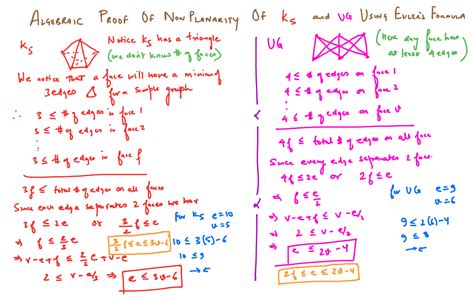 ALGEBRAIC PROOF OF NON PLANARITY OF K5 and UG USING EULER'S FORMULA
K5
Notice K5 has a triangle
(we don't know # of faces)
We notice that a face will have a minimum
3 edges △ for a simple graph
3 ≤ # of edges in face 1
3 ≤ # of edges in face 2
⋮
3 ≤ # of edges in face f
3f ≤ total # of edges on all faces
Since each edge separates 2 faces we have
3f ≤ 2e or 3/2 f ≤ e
⇒ f ≤ 2/3 e
3/2 f ≤ e ≤ 3v-6
⇒ v-e+f ≤ 2/3 e - e + v
2 ≤ v - e/3 ⇒ e ≤ 3v-6
for K5 e=10
v=5
10 ≤ 3(5)-6
10 ≤ 9
→←
UG
(Here any face have
at least 4 edges)
4 ≤ # of edges on face 1
4 ≤ # of edges on face 2
⋮
4 ≤ # of edges on face
4f ≤ total # of edges on all faces
Since every edge separates 2 faces
4f ≤ 2e or 2f ≤ e
⇒ f ≤ e/2
⇒ v-e+f ≤ v - e/2
⇒ 2 ≤ v - e/2
⇒ e ≤ 2v-4
2f ≤ e ≤ 2v-4
for UG e=9
v=6
9 ≤ 2(6)-4
9 ≤ 8
→←